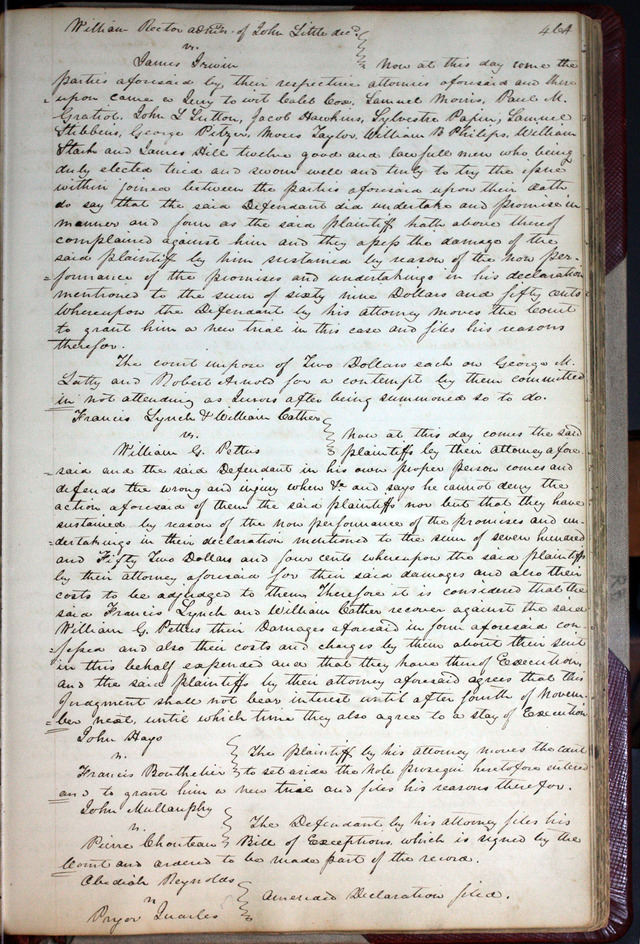 William Rector admr. of John Little decd. 464
vs.
James Irwin } Now at this day come the
parties aforesaid by their respective attornies aforesaid and there
upon came a Jury to wit Caleb Cox, Samuel Morris, Paul M.
Gratiot, John L Sutton, Jacob Hawkins, Sylvestre Papin, Samuel
Stibbens, George Pitzer, Moses Taylor, William B Philips, William
Stark and James Hill twelve good and lawfull men who being
duly elected tried and sworn well and truly to try the issue
within joined between the parties aforesaid upon their oath
do say that the said Defendant did undertake and promise in
manner and form as the said plaintiff hath above thereof
complained against him and they assess the damage of the
said plaintiff by him sustained by reason of the non per-
=formance of the promises and undertakings in his declaration
mentioned to the sum of sixty nine Dollars and fifty cents
whereupon the Defendant by his attorney moves the Court
to grant him a new trial in this case and files his reasons
therefor.
The court impose of Two Dollars each on George M.
Latty and Robert Arnold for a contempt by them committed
in not attending as Jurors after being summoned so to do.
Francis Lynch & William Cather
vs.
William G. Pettus } Now at this day comes the said
plaintiffs by their Attorney afore-
said and the said Defendant in his own proper person comes and
defends the wrong and injury when &c and says he cannot deny the
action aforesaid of them the said plaintiffs nor but that they have
sustained by reason of the non performance of the promises and un-
=dertakings in their declaration mentioned to the sum of seven hundred
and Fifty Two Dollars and four cents whereupon the said plaintiffs
by their attorney aforesaid for their said damages and also their
costs to be adjudged to them, Therefore it is considered that the
said Francis Lynch and William Cather recover against the said
William G. Pettus their Damages aforesaid in form aforesaid con-
fessed and also their costs and charges by them about their suit
in this behalf expended and that they have thereof Execution,
and the said plaintiffs by their attorney aforesaid agrees that this
Judgment shall not bear interest until after fourth of Novem-
ber next, until which time they also agree to a stay of Execution
John Hays
vs.
Francis Bouthelier } The plaintiff by his attorney moves the court
to set aside the Nole prosequi heretofore entered
and to grant him a new trial and files his reasons therefor.
John Mullanphy
vs.
Pierre Chouteau } The Defendant by his attorney files his
Bill of Exceptions, which is signed by the
Court and ordered to be made part of the record.
Obediah Reynolds
vs
Pryor Quarles } Amended Declaration filed.